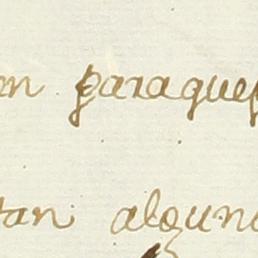 en paraque
tan algun